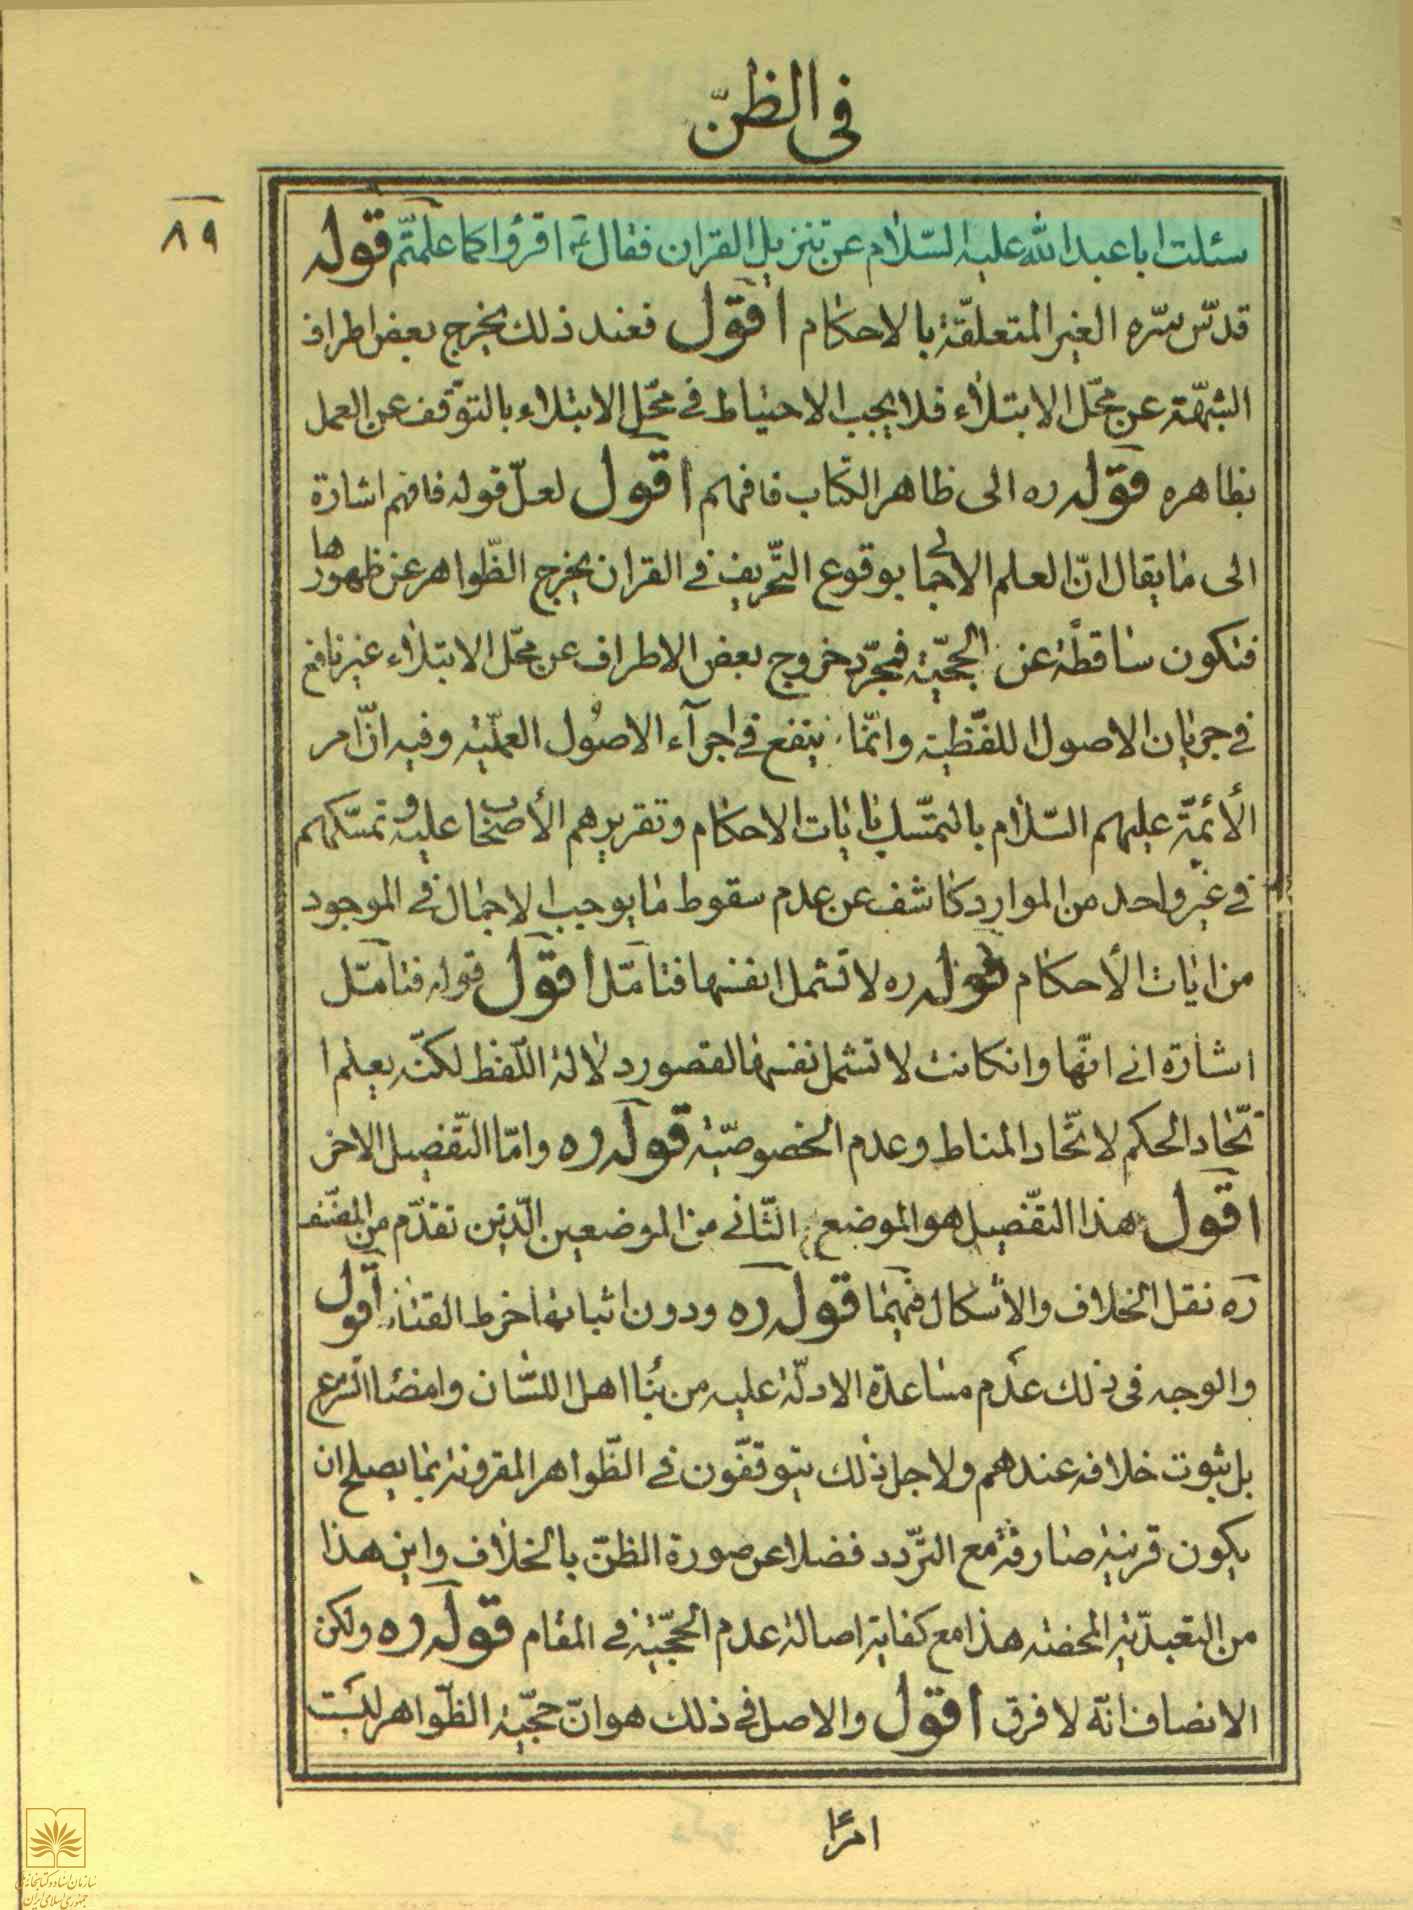 فی الظنّ
٨٩
سئلت ابا عبد الله علیه السّلام عن تنزیل القران فقال ع اقرؤا کما علمتم قوله
قدّس سّره الغیر المتعلقة بالاحکام اقول فعند ذلک یخرج بعض اطراف
الشبهة عن محّل الابتلاء فلا یجب الاحتیاط فی محّل الابتلاء بالتوقف عن العمل
بظاهره قوله ره الی ظاهر الکتاب فافهم اقول لعلّ قوله فافهم اشارة
الی ما یقال انّ العلم الاجمالی بوقوع التّحریف فی القران یخرج الظّواهر عن ظهورها
فتکون ساقطة عن الحجّیة فمجرّد خروج بعض الاطراف عن محّل الابتلاء غیر نافع
فی جریان الاصول اللفّظیة وانّما ینفع فی اجرآء الاصُول العملّیة وفیه انّ امر
الأئمّة علیهم السّلام بالتمسّک بایات الاحکام وتقریرهم الأصحاب علیه وتمسّکهم
فی غیر واحد من الموارد کاشف عن عدم سقوط ما یوجب الاجمال فی الموجود
من ایات الأحکام قوله ره لا تشمل انفسها فتامّل اقول قوله فتامّل
اشارة الی انّها وان کانت لا تشمل نفسها لقصور دلالة اللّفظ لکنّه یعلم ا
تّحاد الحکم لاتّحاد المناط وعدم الخصوصّیة قوله ره وامّا التّفصیل الاخر
اقول هذا التّفصیل هو الموضع الثّانی من الموضعین الّذین تقدّم من المصّنف
ره نقل الخلاف والأشکال فیهما قوله ره ودون اثباتها خرط القتاد اقول
والوجه فی ذلک عدم مساعدة الادلّة علیه من بُنا اهل اللسّان وامضا الشرع
بل ثبوت خلافه عندهم ولاجل ذلک یتوقفّون فی الظّواهر المقرونة بما یصلح ان
یکون قرینة صارفة مع التّردد فضلا عن صورة الظنّ بالخلاف واین هذا
من التعبدّیة المحضة هذا مع کفایة اصالة عدم الحجّیة فی المقام قوله ره ولکن
الانصاف انّه لا فرق اقول والاصل فی ذلک هو انّ حجّیة الظّواهر لیست
امرًا
سازمان اسناد و کتابخانه ملی
جمهوری اسلامی ایران